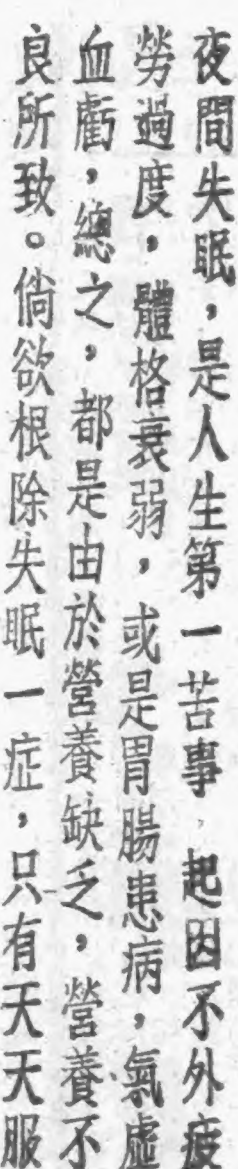 夜間失眠，是人生第一苦事，起因不外疲
勞過度，體格衰弱，或是胃腸患病，氣虛
血虧，總之，都是由於營養缺乏，營養不
良所致。倘欲根除失眠一症，只有天天服